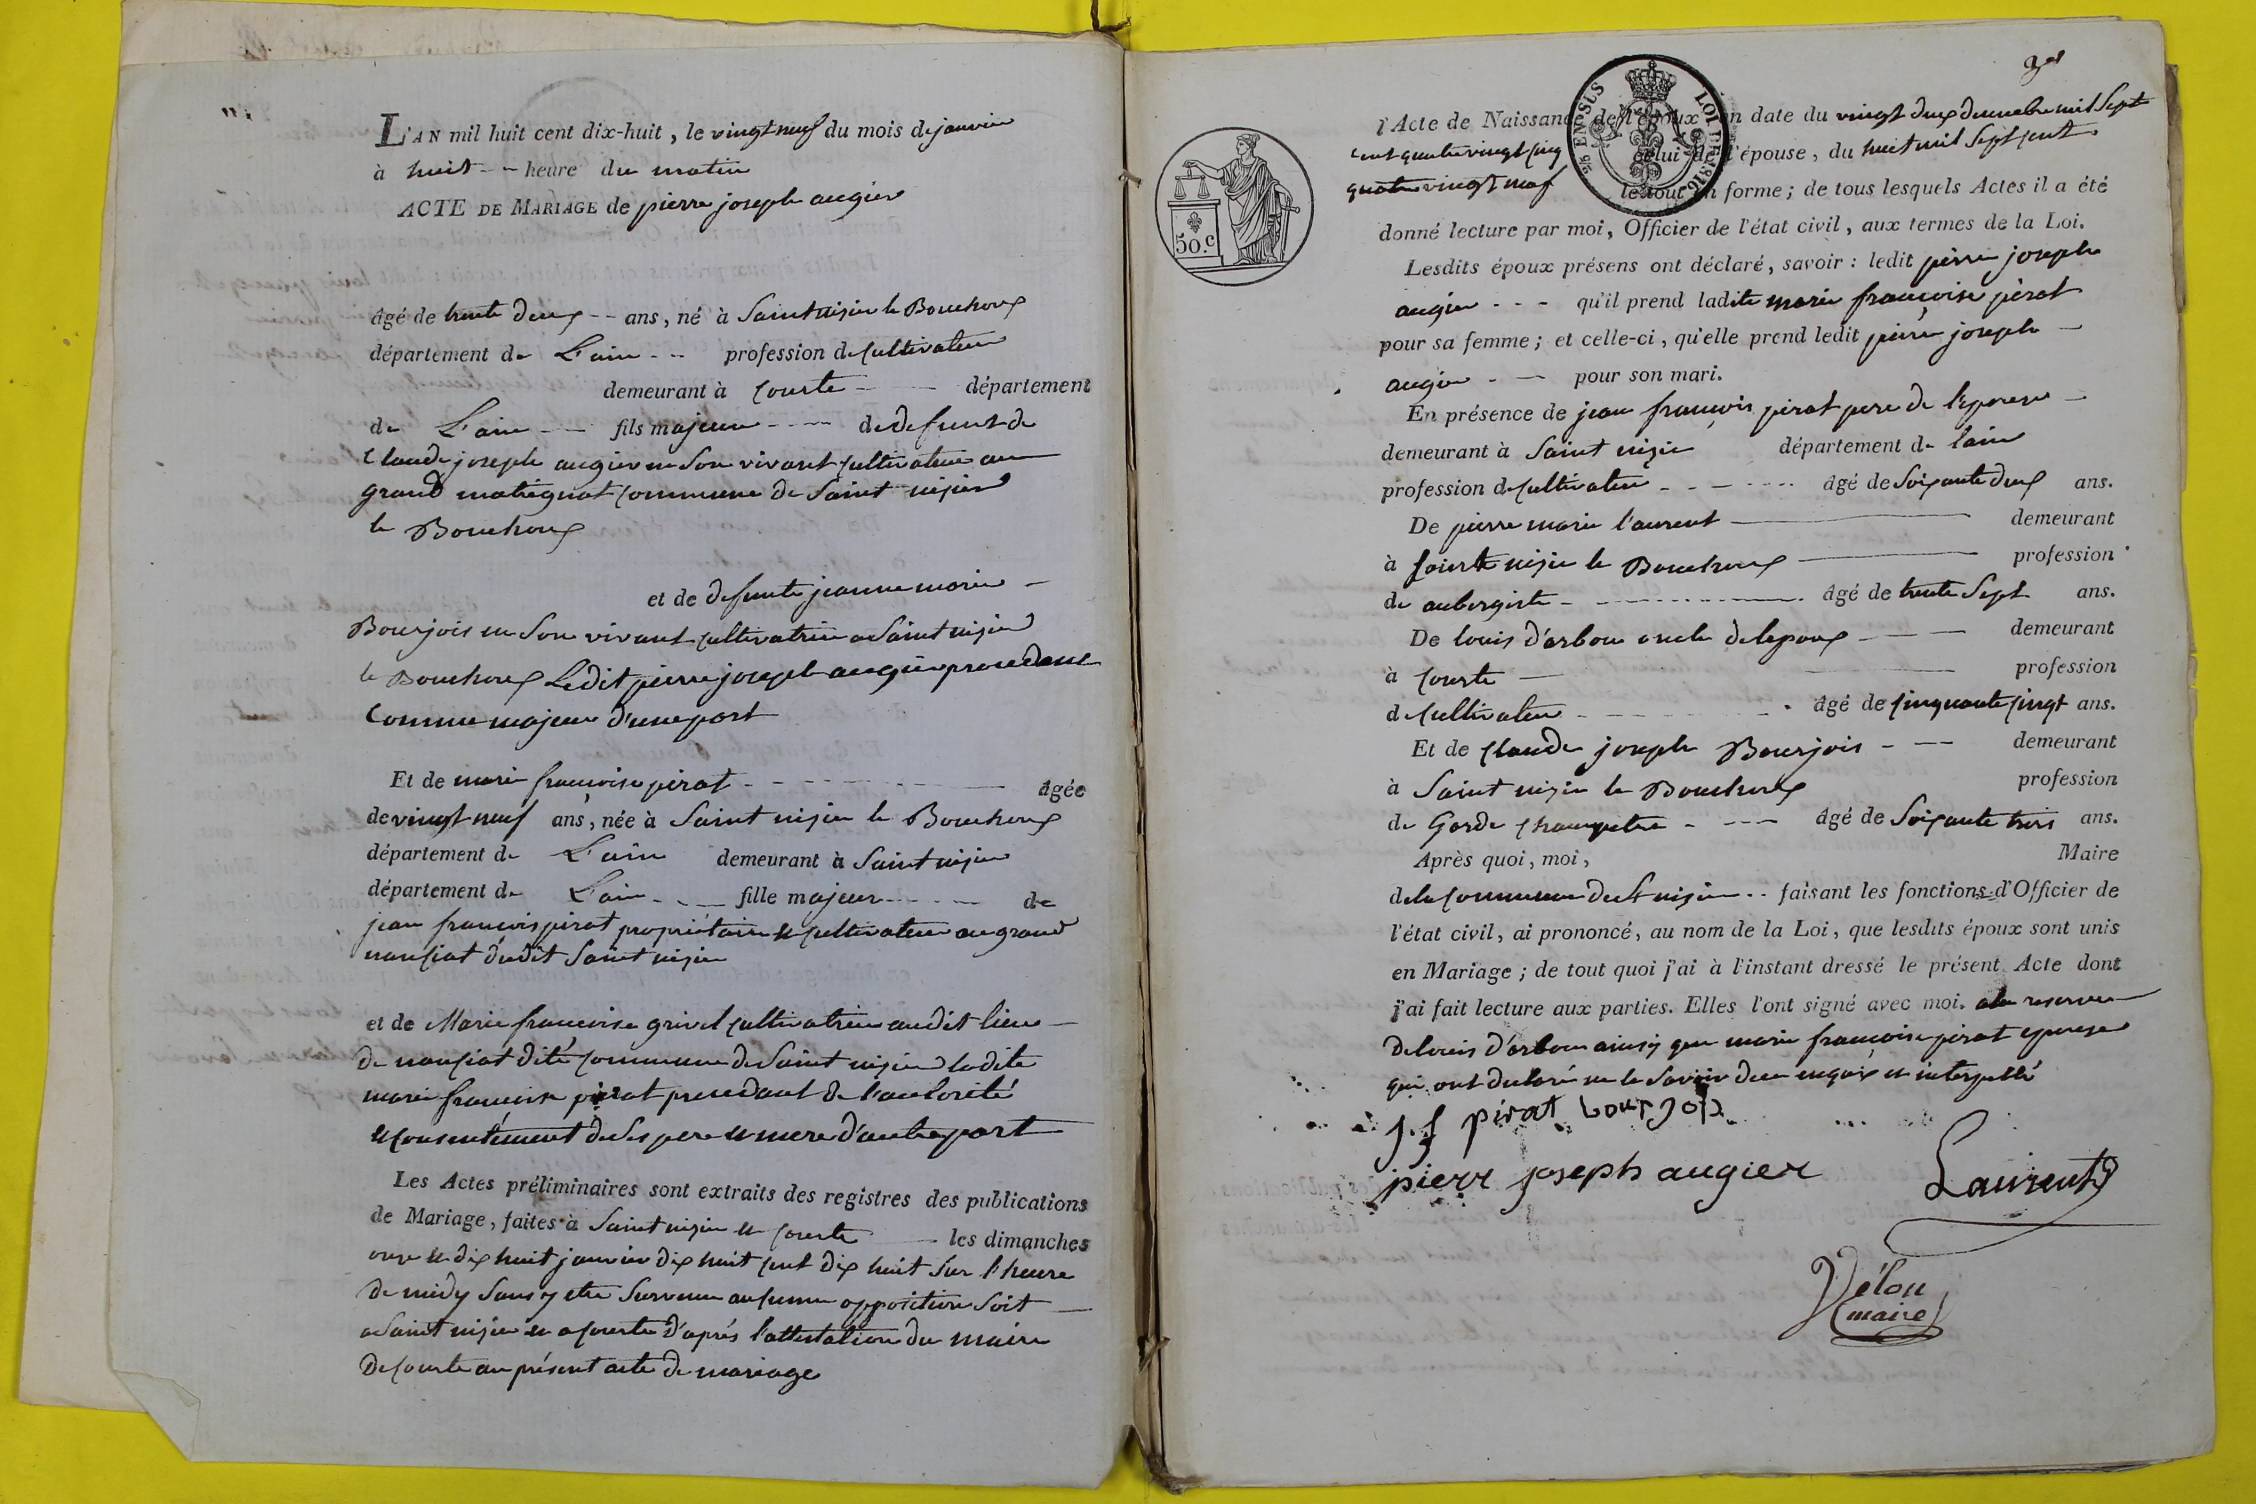 L'AN mil huit cent dix-huit, le vingt neuf du mois de janvier
à huit -- heure du matin
ACTE DE MARIAGE de pierre joseph augier
âgé de trente deux -- ans, né à Saint nisier le Bouchoux
département de L'ain -- profession de cultivateur
demeurant à courte -- département
de L'ain -- fils majeur --- de defunt de
Claude joseph augier en son vivant cultivateur au
grand matignat commune de Saint nisier
le Bouchoux
et de defunte jeanne marie -
Bourjois en son vivant cultivatrice a Saint nisier
le Bouchoux Ledit pierre joseph augier procedant
comme majeur d'une part
Et de marie francoise pirat - âgée
de vingt neuf ans, née à Saint nisier le Bouchoux
département de L'ain demeurant à Saint nisier
département de L'ain -- fille majeur --- de
jean francois pirat propriétaire et cultivateur au grand
nonciat dudit Saint nisier
et de Marie francoise grivel cultivatrice audit lieu -
de nonciat dite commune de Saint nisier ladite
marie francoise pirat procedant de l'autorité
et consentement de ses pere et mere d'autre part
Les Actes préliminaires sont extraits des registres des publications
de Mariage, faites à Saint nisier et courte -- les dimanches
onze et dix huit janvier dix huit cent dix huit sur l'heure
de midy sans y etre survenu aucune opposition soit -
a Saint nisier et a courte d'aprés l'attestation du maire
de courte au présent acte de mariage
3
l'Acte de Naissance de l'époux en date du vingt deux decembre mil sept
cent quatre vingt cinq celui de l'épouse, du huit mil sept cent
quatre vingt neuf le tout en forme; de tous lesquels Actes il a été
donné lecture par moi, Officier de l'état civil, aux termes de la Loi.
50.c
EN SUS LOI DE 1816
Lesdits époux présens ont déclaré, savoir: ledit pierre joseph
augier - - - qu'il prend ladite marie françoise pirat
pour sa femme; et celle-ci, qu'elle prend ledit pierre joseph -
augier - -- pour son mari.
En présence de jean françois pirat pere de l'epouse -
demeurant à Saint nisier département de lain
profession de cultivateur - - - - âgé de Soixante deux ans.
De pierre marie l'aurent -- demeurant
à Saint nisier le Bouchoux -- profession
de aubergiste - --- âgé de trente Sept ans.
De louis d'arbon oncle de lepoux - -- demeurant
à courte -- profession
de cultivateur - - - âgé de cinquante cinqt ans.
Et de Claude joseph Bourjois - -- demeurant
à Saint nisier le Bouchoux profession
de Garde champetre - --- âgé de Soixante trois ans.
Après quoi, moi, Maire
de la commune de St nisier -- faisant les fonctions d'Officier de
l'état civil, ai prononcé, au nom de la Loi, que lesdits époux sont unis
en Mariage; de tout quoi j'ai à l'instant dressé le présent Acte dont
j'ai fait lecture aux parties. Elles l'ont signé avec moi. a la reserve -
de louis d'arbon ainsy que marie françoise pirat epouse
qui ont declaré ne le savoir de ce enquis et interpellé
j. f pirat bourjois
pierr joseph augier
Laurent
Vélon
maire